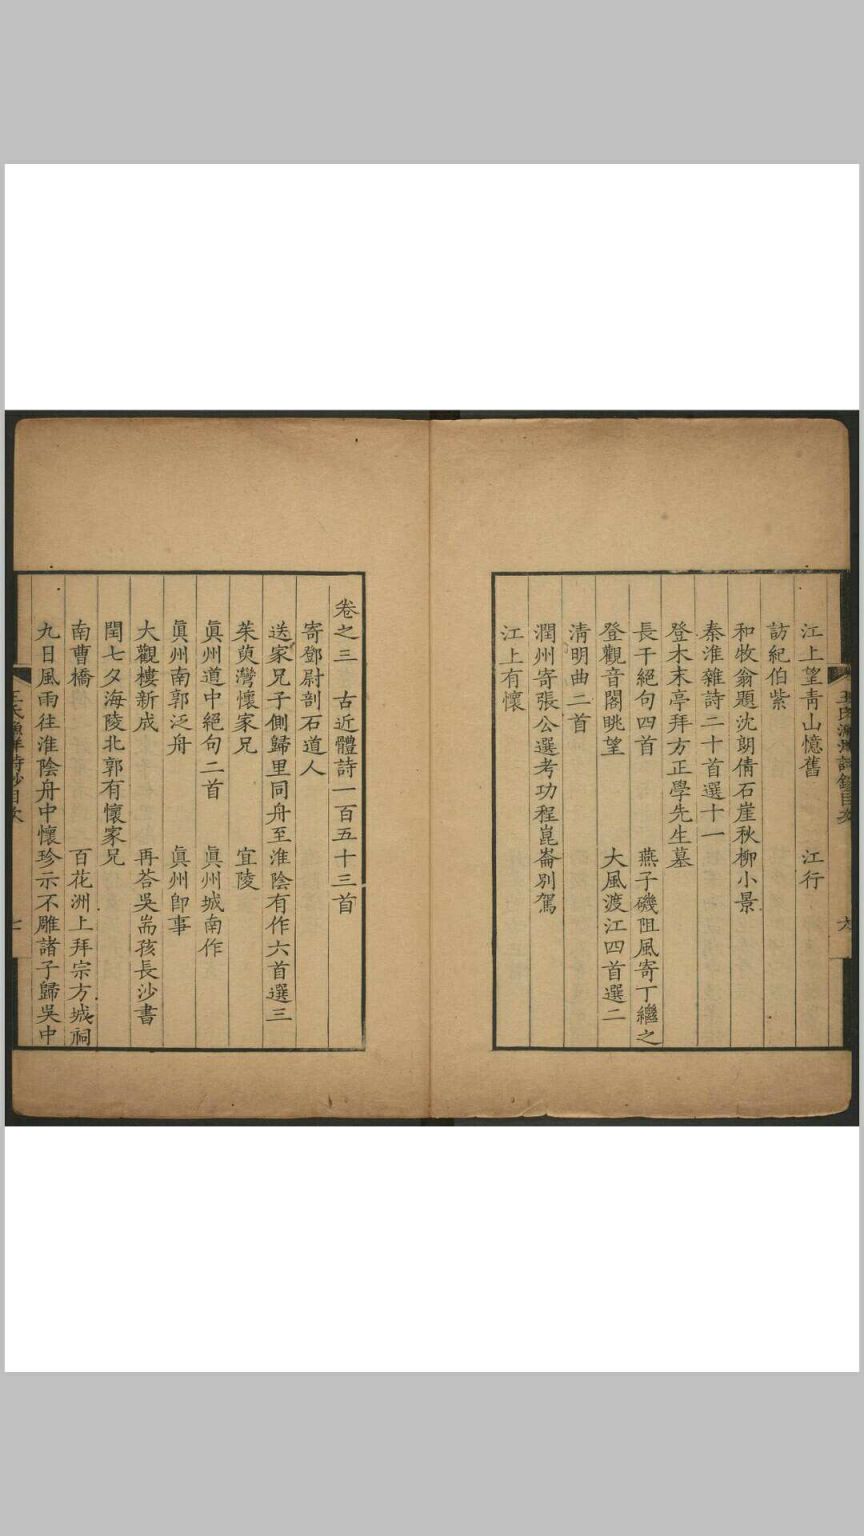 江上望青山憶舊　江行
訪紀伯紫
和牧翁題沈朗倩石崖秋柳小景
秦淮雜詩二十首選十一
登木末亭拜方正學先生墓
長干絕句四首　燕子磯阻風寄丁繼之
登觀音閣眺望　大風渡江四首選二
清明曲二首
潤州寄張公選考功程崑崙別駕
江上有懷
卷之三　古近體詩一百五十三首
寄鄧尉剖石道人
送家兄子側歸里同舟至淮陰有作六首選三
茱萸灣懷家兄　宜陵
眞州道中絕句二首　眞州城南作
眞州南郭泛舟　眞州卽事
大觀樓新成　再荅吳耑孩長沙書
閏七夕海陵北郭有懷家兄
南曹橋　百花洲上拜宗方城祠
九日風雨往淮陰舟中懷珍示不雕諸子歸吳中